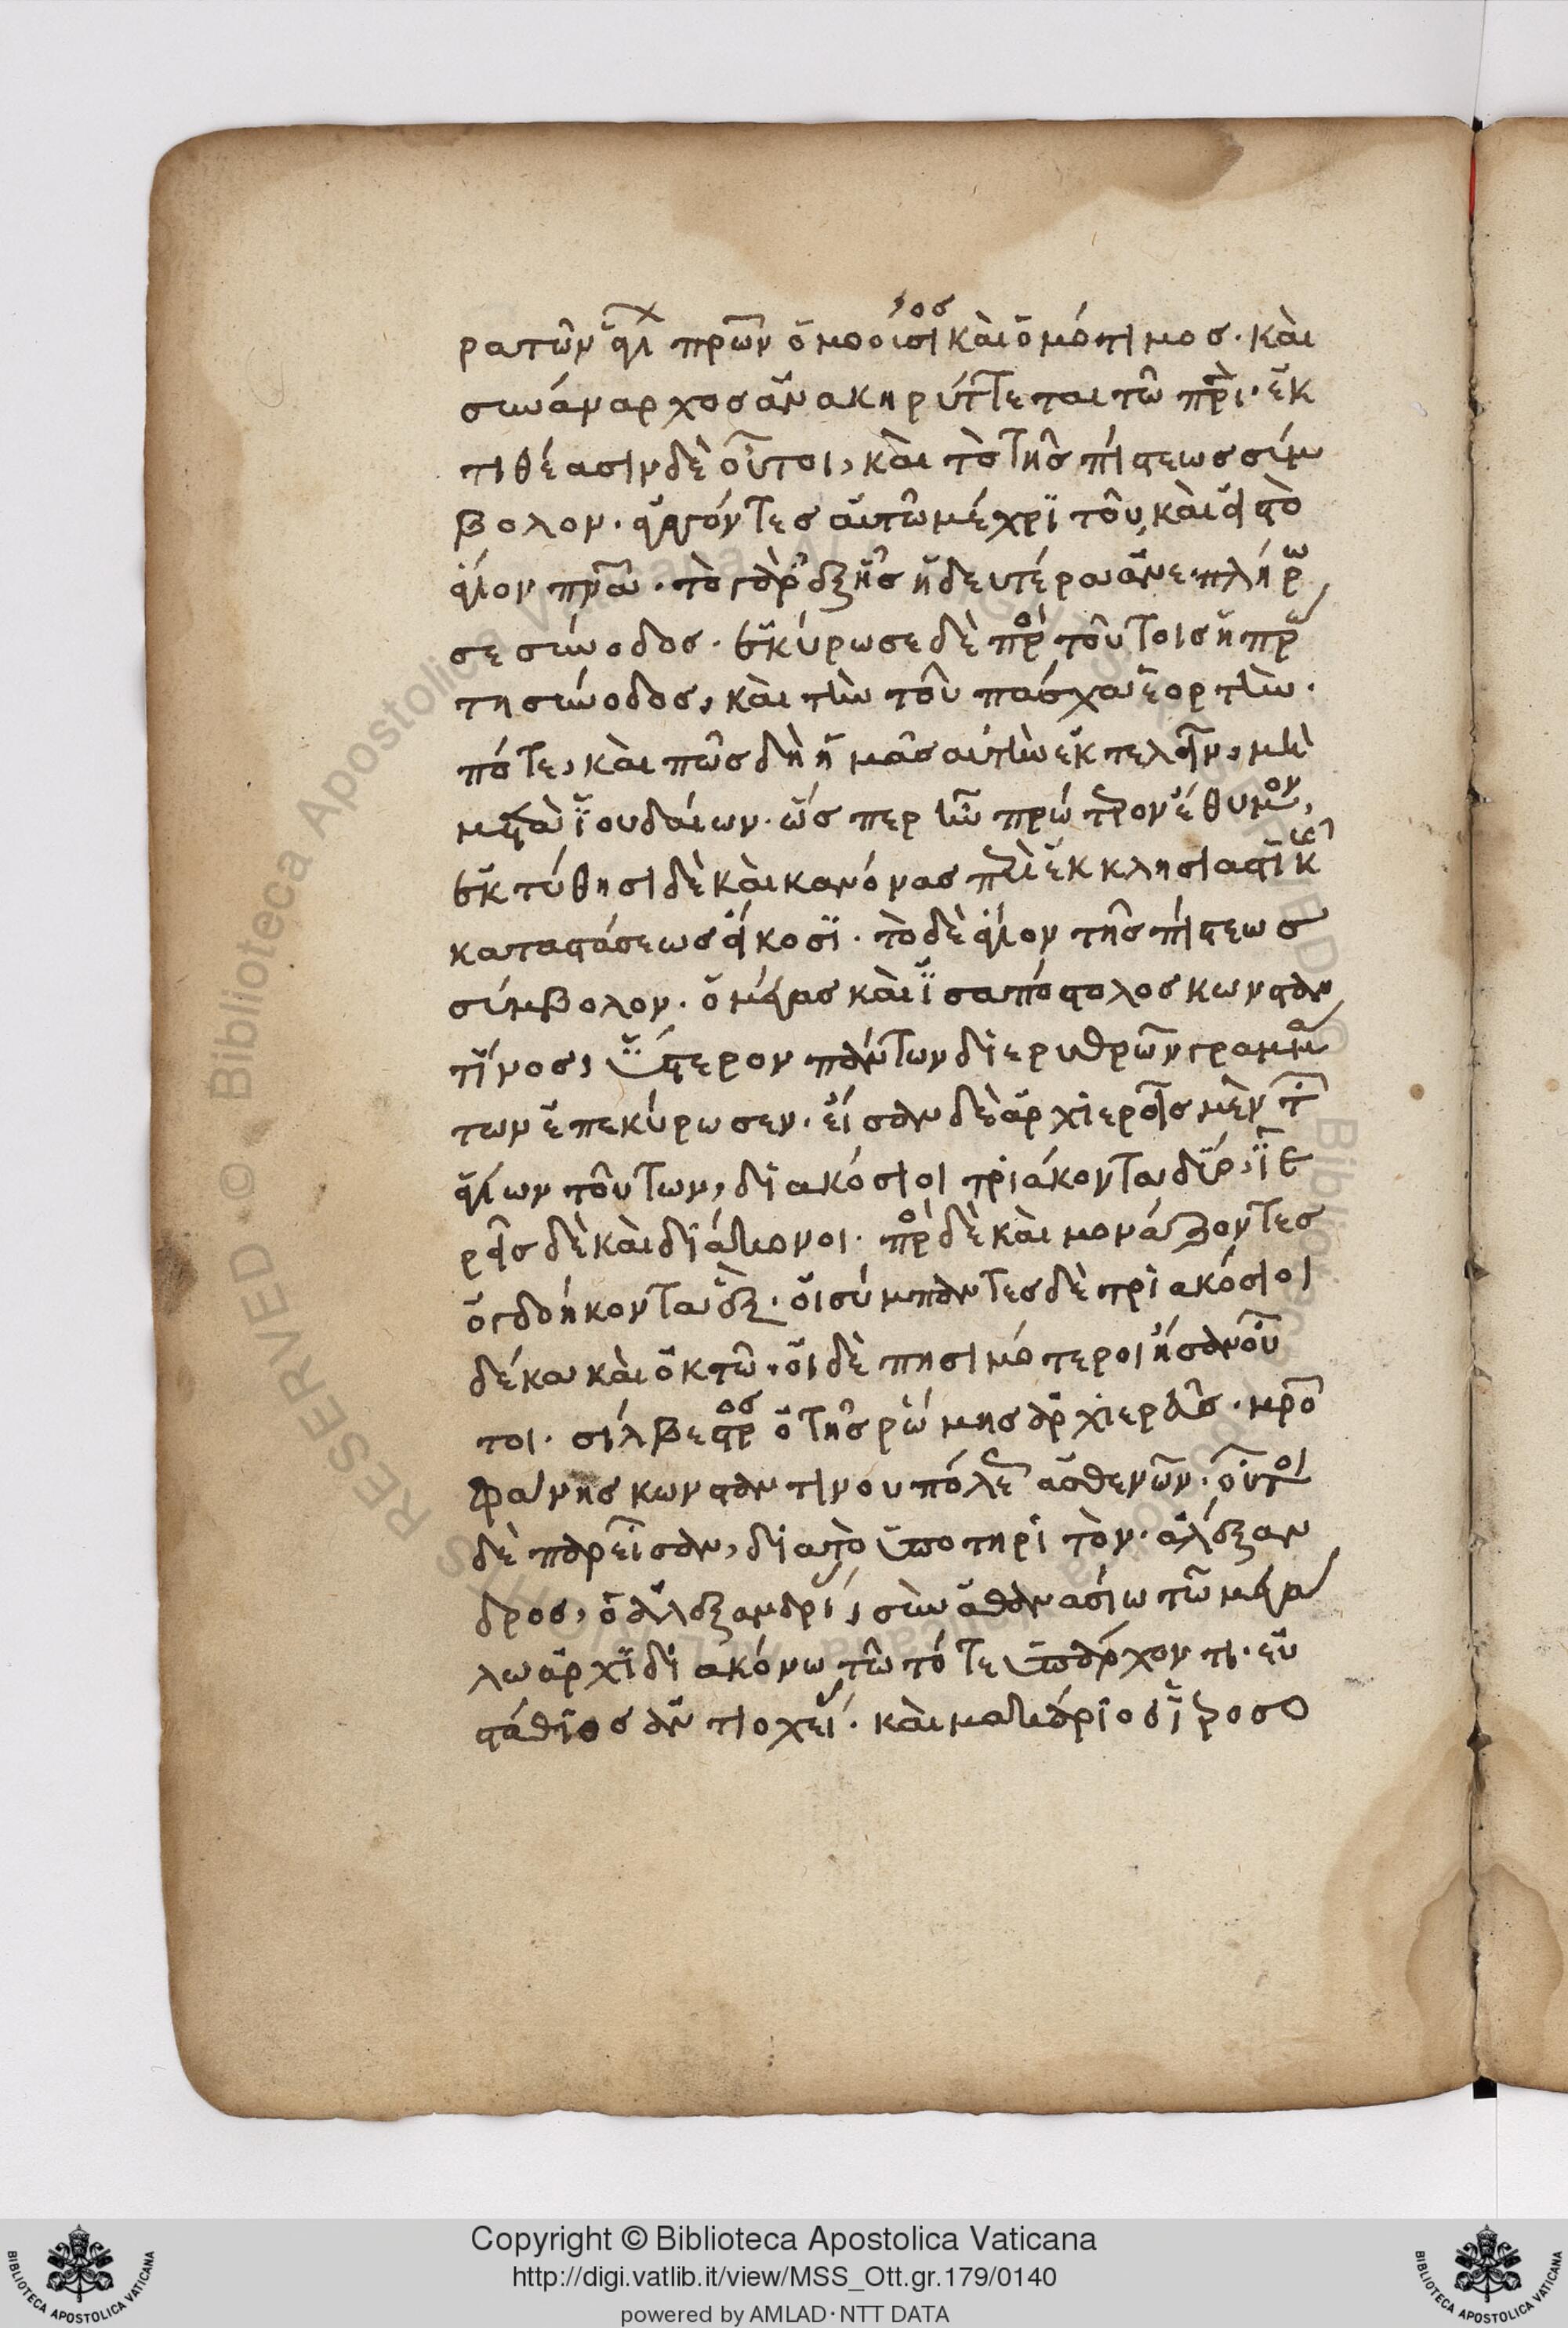 ρατῶν ἁγί πρων ὁμοούσιος καὶ ὁμότιμος· καὶ
συνάναρχος ἀνακηρύττεται τῶ πρὶ· ἐκ
τιθέασιν δὲ οὗτοι, καὶ τὸ τῆς πίστεως σύμ
βολον· εἰπόντες αὐτῶ μέχρι τοῦ, καὶ εἰς τὸ
ἅγιον πνα· τὸ γὰρ ἑξῆς ἡ δευτέρα ἀνεπλήρω
σε σύνοδος· ἐκύρωσε δὲ πρὸ τούτοις ἡ πρώ
τη σύνοδος, καὶ τὴν τοῦ πάσχα ἑορτὴν·
πότε, καὶ πῶς δὴ ἡμᾶς αὐτὴν ἐκτελεῖν, μὴ
μετὰ ἰουδαίων· ὥς περ ἦν πρώτερον ἔθιμον,
ἐκτύθησι δὲ καὶ κανόνας περὶ ἐκκλησιαστικῆς
καταστάσεως εἴκοσι· τὸ δὲ ἅγιον τῆς πίστεως
σύμβολον· ὁ μέγας καὶ ἰσαπόστολος κωνσταν
τῖνος, ὕστερον πάντων δι ερυθρῶν γραμμά
των ἐπεκύρωσεν· εἴσαν δὲ ἀρχιερεῖς μὲν τ
ἁγίων τούτων, διακόσιοι τριάκοντα δύο, ἱε
ρεῖς δὲ καὶ διάκονοι· πρὸ δὲ καὶ μονάζοντες
ὀγδοήκοντα ἓξ· οἱ σύμπαντες δὲ τριακόσιοι
δέκα καὶ ὀκτῶ· οἱ δὲ πησιμότεροι ἦσαν οὗ
τοι· σίλβεστρος ὁ τῆς ρώμης ἀρχιερεὺς· μρο
φάνης κωνσταντινουπόλε ἀσθενῶν· οὗτοι
δὲ παρεῖσαν, δια τοποτηριτὸν· ἀλέξαν
δρος, ὁ ἀλεξανδρεί, σὺν ἀθανασίω τῶ μεγά
λω ἀρχιδιακόνω τῶ τότε ὑπάρχοντι· εὐ
στάθιος ἀντιοχεί· καὶ μακάριος ἱεροσο